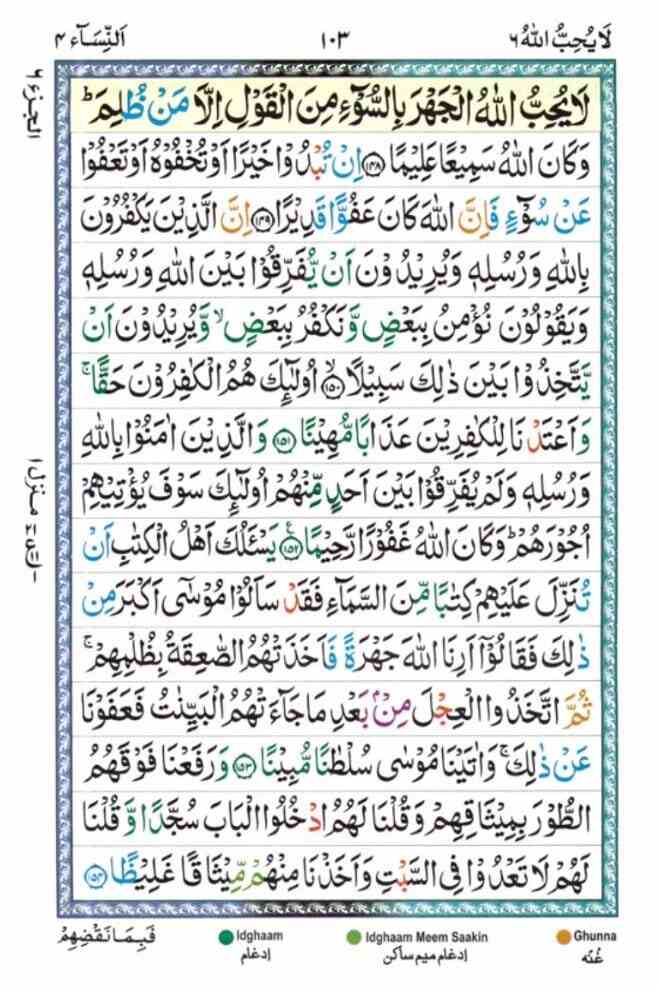 لَا يُحِبُّ اللهُ ٦
١٠٣
اَلنِّسَآء ٤
الجزء ٦
لَا يُحِبُّ اللهُ الْجَهْرَ بِالسُّوْٓءِ مِنَ الْقَوْلِ اِلَّا مَنْ ظُلِمَ ؕ
وَكَانَ اللهُ سَمِيْعًا عَلِيْمًا ﴿۱۴۸﴾ اِنْ تُبْدُوْا خَيْرًا اَوْ تُخْفُوْهُ اَوْ تَعْفُوْا
عَنْ سُوْٓءٍ فَاِنَّ اللهَ كَانَ عَفُوًّا قَدِيْرًا ﴿۱۴۹﴾ اِنَّ الَّذِيْنَ يَكْفُرُوْنَ
بِاللهِ وَرُسُلِهٖ وَيُرِيْدُوْنَ اَنْ يُّفَرِّقُوْا بَيْنَ اللهِ وَرُسُلِهٖ
وَيَقُوْلُوْنَ نُؤْمِنُ بِبَعْضٍ وَّنَكْفُرُ بِبَعْضٍ ۙ وَّيُرِيْدُوْنَ اَنْ
يَّتَّخِذُوْا بَيْنَ ذٰلِكَ سَبِيْلًا ﴿۱۵۰﴾ ۙ اُولٰٓئِكَ هُمُ الْكٰفِرُوْنَ حَقًّا ۚ
وَاَعْتَدْنَا لِلْكٰفِرِيْنَ عَذَابًا مُّهِيْنًا ﴿۱۵۱﴾ وَالَّذِيْنَ اٰمَنُوْا بِاللهِ
وَرُسُلِهٖ وَلَمْ يُفَرِّقُوْا بَيْنَ اَحَدٍ مِّنْهُمْ اُولٰٓئِكَ سَوْفَ يُؤْتِيْهِمْ
اُجُوْرَهُمْ ؕ وَكَانَ اللهُ غَفُوْرًا رَّحِيْمًا ﴿۱۵۲﴾ ع يَسْـَٔلُكَ اَهْلُ الْكِتٰبِ اَنْ
تُنَزِّلَ عَلَيْهِمْ كِتٰبًا مِّنَ السَّمَآءِ فَقَدْ سَاَلُوْا مُوْسٰٓى اَكْبَرَ مِنْ
ذٰلِكَ فَقَالُوْٓا اَرِنَا اللهَ جَهْرَةً فَاَخَذَتْهُمُ الصّٰعِقَةُ بِظُلْمِهِمْ ۚ
ثُمَّ اتَّخَذُوا الْعِجْلَ مِنْۢ بَعْدِ مَا جَآءَتْهُمُ الْبَيِّنٰتُ فَعَفَوْنَا
عَنْ ذٰلِكَ ۚ وَاٰتَيْنَا مُوْسٰى سُلْطٰنًا مُّبِيْنًا ﴿۱۵۳﴾ وَرَفَعْنَا فَوْقَهُمُ
الطُّوْرَ بِمِيْثَاقِهِمْ وَقُلْنَا لَهُمُ ادْخُلُوا الْبَابَ سُجَّدًا وَّقُلْنَا
لَهُمْ لَا تَعْدُوْا فِى السَّبْتِ وَاَخَذْنَا مِنْهُمْ مِّيْثَاقًا غَلِيْظًا ﴿۱۵۴﴾
منزل ١
Ghunna
غُنّه
Idghaam Meem Saakin
ادغام میم ساکن
Idghaam
ادغام
فَبِمَا نَقْضِهِمْ